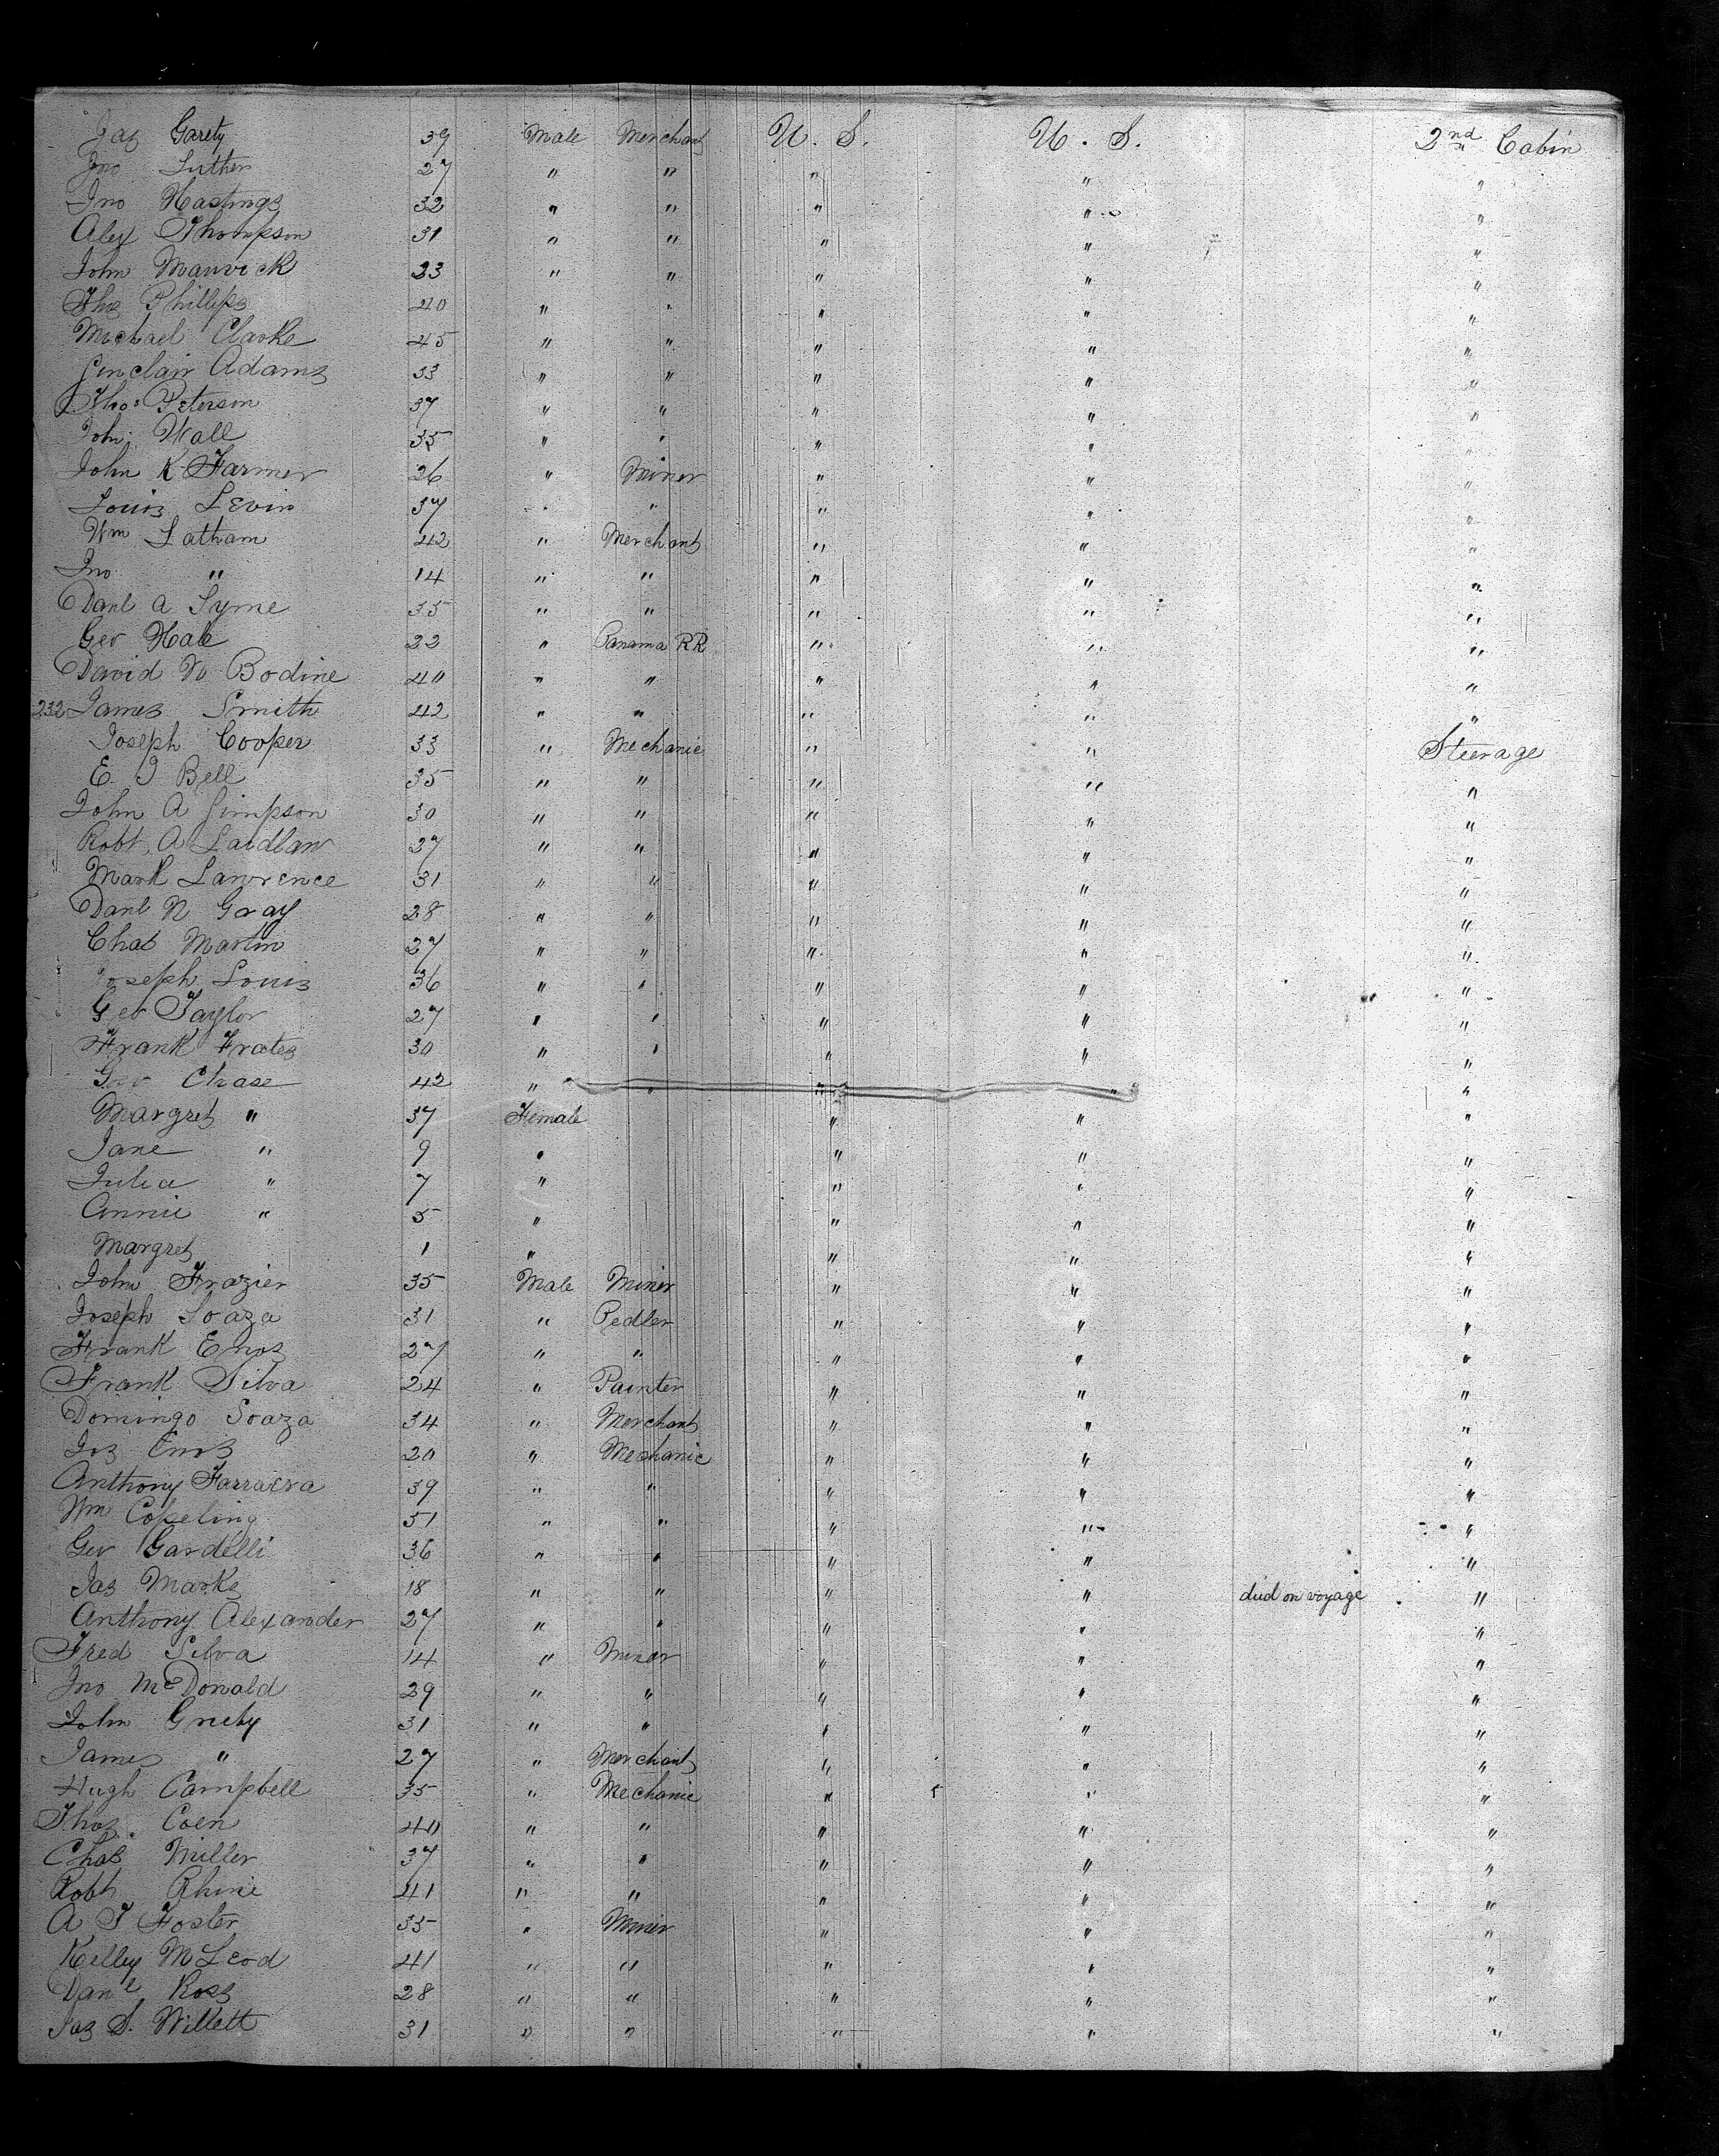 Jas Garety 39 Male Merchant U. S. U. S. 2nd Cabin
Jno Luther 27 " " " " "
Jno Hastings 32 " " " " "
Alex Thompson 31 " " " " "
John Marvick 23 " " " " "
Thos Phillips 40 " " " " "
Michael Clarke 45 " " " " "
Sinclair Adams 33 " " " " "
Thos Peterson 37 " " " " "
John Wall 35 " " " " "
John K Farmer 26 " Miner " " "
Louis Levin 37 " " " " "
Wm Latham 42 " Merchant " " "
Jno " 14 " " " " "
Danl A Lyme 35 " " " " "
Geo Hale 22 " Panama RR " " "
David N Bodine 40 " " " " "
232 James Smith 42 " " " " "
Joseph Cooper 33 " Mechanic " " Steerage
E. J Bell 35 " " " " "
John A Simpson 30 " " " " "
Robt A Laidlaw 37 " " " " "
Mark Lawrence 31 " " " " "
Danl N Gray 28 " " " " "
Chas Martin 27 " " " " "
Joseph Louis 36 " " " " "
Geo Taylor 27 " " " " "
Frank Frates 30 " " " " "
Geo Chase 42 " " " " "
Margret " 37 Female " " "
Jane " 9 " " " "
Julia " 7 " " " "
Annie " 5 " " " "
Margret 1 " " " "
John Frazier 35 Male Miner " " "
Joseph Soaza 31 " Pedler " " "
Frank Enos 27 " " " " "
Frank Silva 24 " Painter " " "
Domingo Soaza 34 " Merchant " " "
Jos Enos 20 " Mechanic " " "
Anthony Farraera 39 " " " " "
Wm Copeling 51 " " " " "
Geo Gardelli 36 " " " " "
Jas Marks 18 " " " " died on voyage "
Anthony Alexander 27 " " " " "
Fred Silva 14 " Miner " " "
Jno McDonald 29 " " " " "
John Grieby 31 " " " " "
James " 27 " Merchant " " "
Hugh Campbell 35 " Mechanic " " "
Thos Coen 40 " " " " "
Chas Miller 37 " " " " "
Robt Rhine 41 " " " " "
A J Foster 35 " Miner " " "
Kelley McLeod 41 " " " " "
Danl Ross 28 " " " " "
Jas S. Willett 31 " " " " "